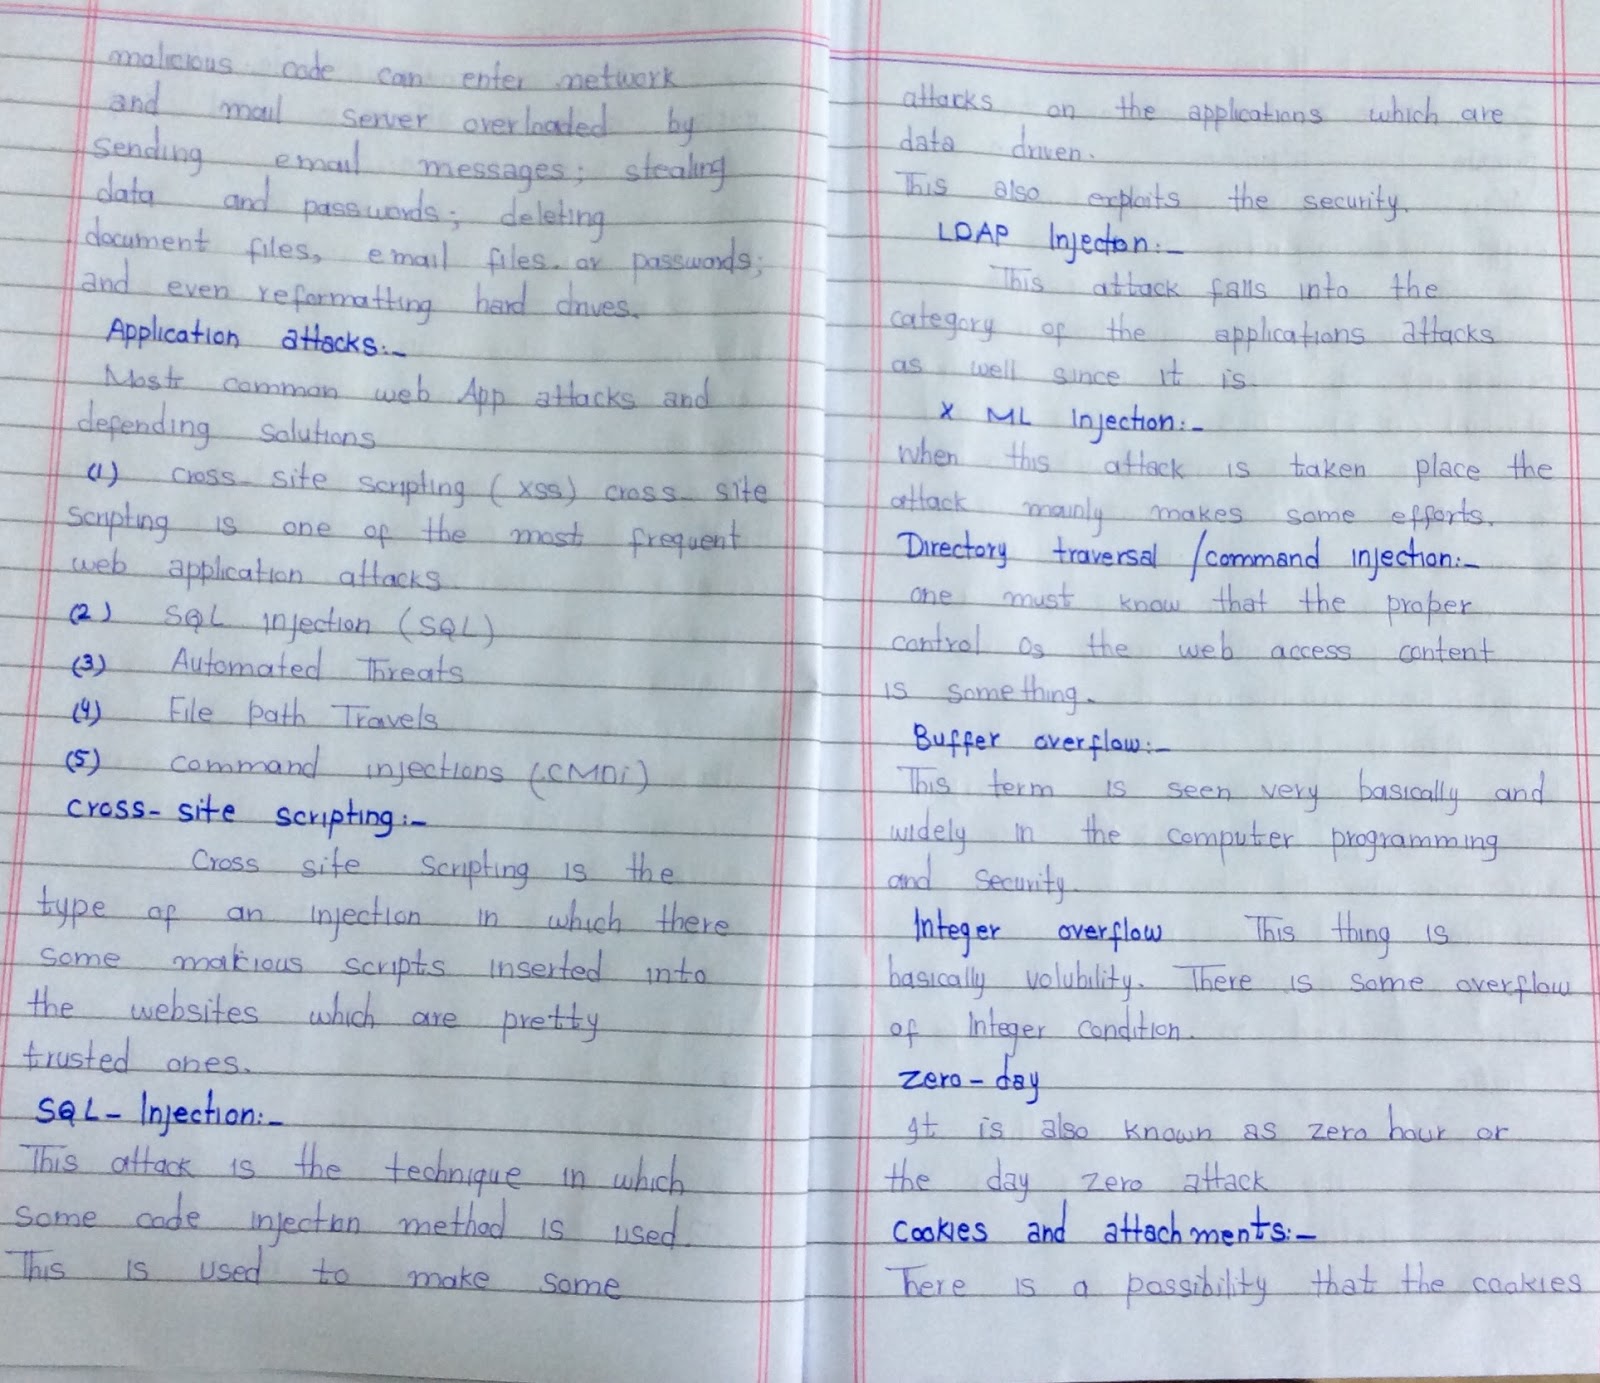 malicious code can enter network
and mail server overloaded by
sending email messages; stealing
data and passwords; deleting
document files, email files or passwords;
and even reformatting hard drives.
Application attacks:-
Most common web App attacks and
defending solutions
(1) cross site scripting (XSS) cross site
scripting is one of the most frequent
web application attacks
(2) SQL injection (SQL)
(3) Automated Threats
(4) File path Travels
(5) command injections (CMDi)
cross-site scripting:-
Cross site scripting is the
type of an injection in which there
some malicious scripts inserted into
the websites which are pretty
trusted ones.
SQL-Injection:-
This attack is the technique in which
some code injection method is used
This is used to make some
attacks on the applications which are
data driven.
This also exploits the security.
LDAP Injection:-
This attack falls into the
category of the applications attacks
as well since it is
X ML Injection:-
when this attack is taken place the
attack mainly makes some efforts.
Directory traversal /command injection:-
one must know that the proper
control os the web access content
is something.
Buffer overflow:-
This term is seen very basically and
widely in the computer programming
and security.
Integer overflow This thing is
basically volubility. There is some overflow
of Integer condition.
zero-day
It is also known as zero hour or
the day zero attack
Cookies and attachments:-
There is a possibility that the cookies